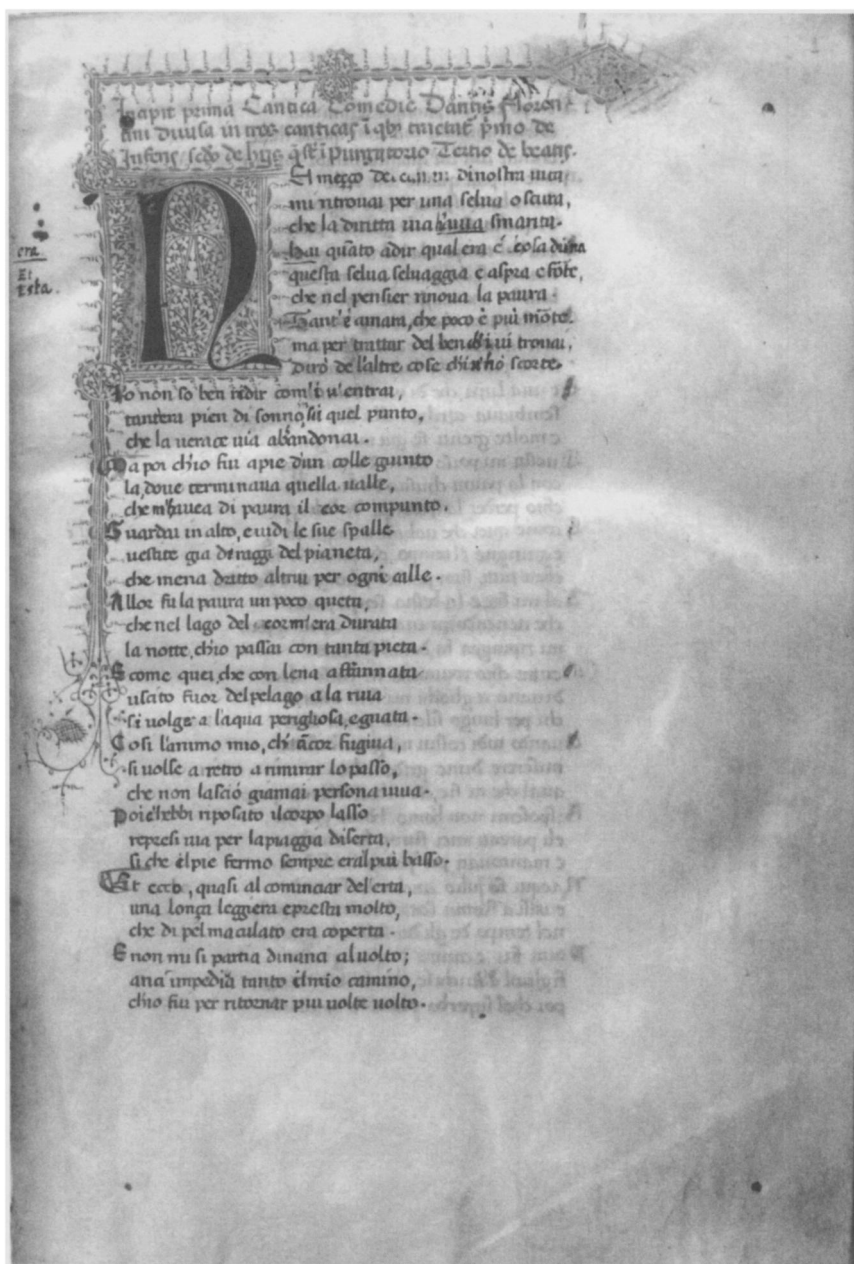 Incipit prima Cantica Comedie Dantis Floren
tini divisa in tres canticas i qb; primo de
Inferis, scdo de hijs q st i Purgatorio Tertio de beatis.
El mezzo di nostra
mi ritrouai per una selua oscura,
che la diritta uia smarita.
hai quāto adir qual era é cosa dura
questa selua seluaggia e aspra e forte,
che nel pensier rinoua la paura.
Tant' é amara, che poco é piú morte
ma per trattar del ben ui trouai,
diró de l'altre cose scorte.
era
Et
Esta.
Io non so ben redir com'i u'entrai,
tant'era pien di sonno quel punto,
che la uerace uia abandonai.
Ma poi ch'io fui apie d'un colle giunto
la, doue terminaua quella ualle,
che m'hauea di paura il cor compunto.
Guardai in alto, e uidi le sue spalle
uestite gia de raggi del pianeta,
che mena dritto altrui per ogni calle.
Allor fu la paura un poco queta,
che nel lago del cor m'era durata
la notte, ch'io passai con tanta pieta.
E come quei, che con lena affannata
usato fuor del pelago a la riua
si uolge a l'aqua perigliosa, e guata.
Cosi l'animo mio, ch' ācor fugiua,
si uolse a retro a rimirar lo passo,
che non lasció giamai persona uiua.
Poi ch'ebbi riposato il corpo lasso
represi uia per la piaggia diserta,
si che 'l pie fermo sempre era 'l piu basso.
Et ecco, quasi al cominciar del erta,
una lonza leggiera e presta molto,
che di pel maculato era coperta.
E non mi si partia dinanzi al uolto;
anzi impedia tanto el mio camino,
ch'io fui per ritornar piu uolte uolto.